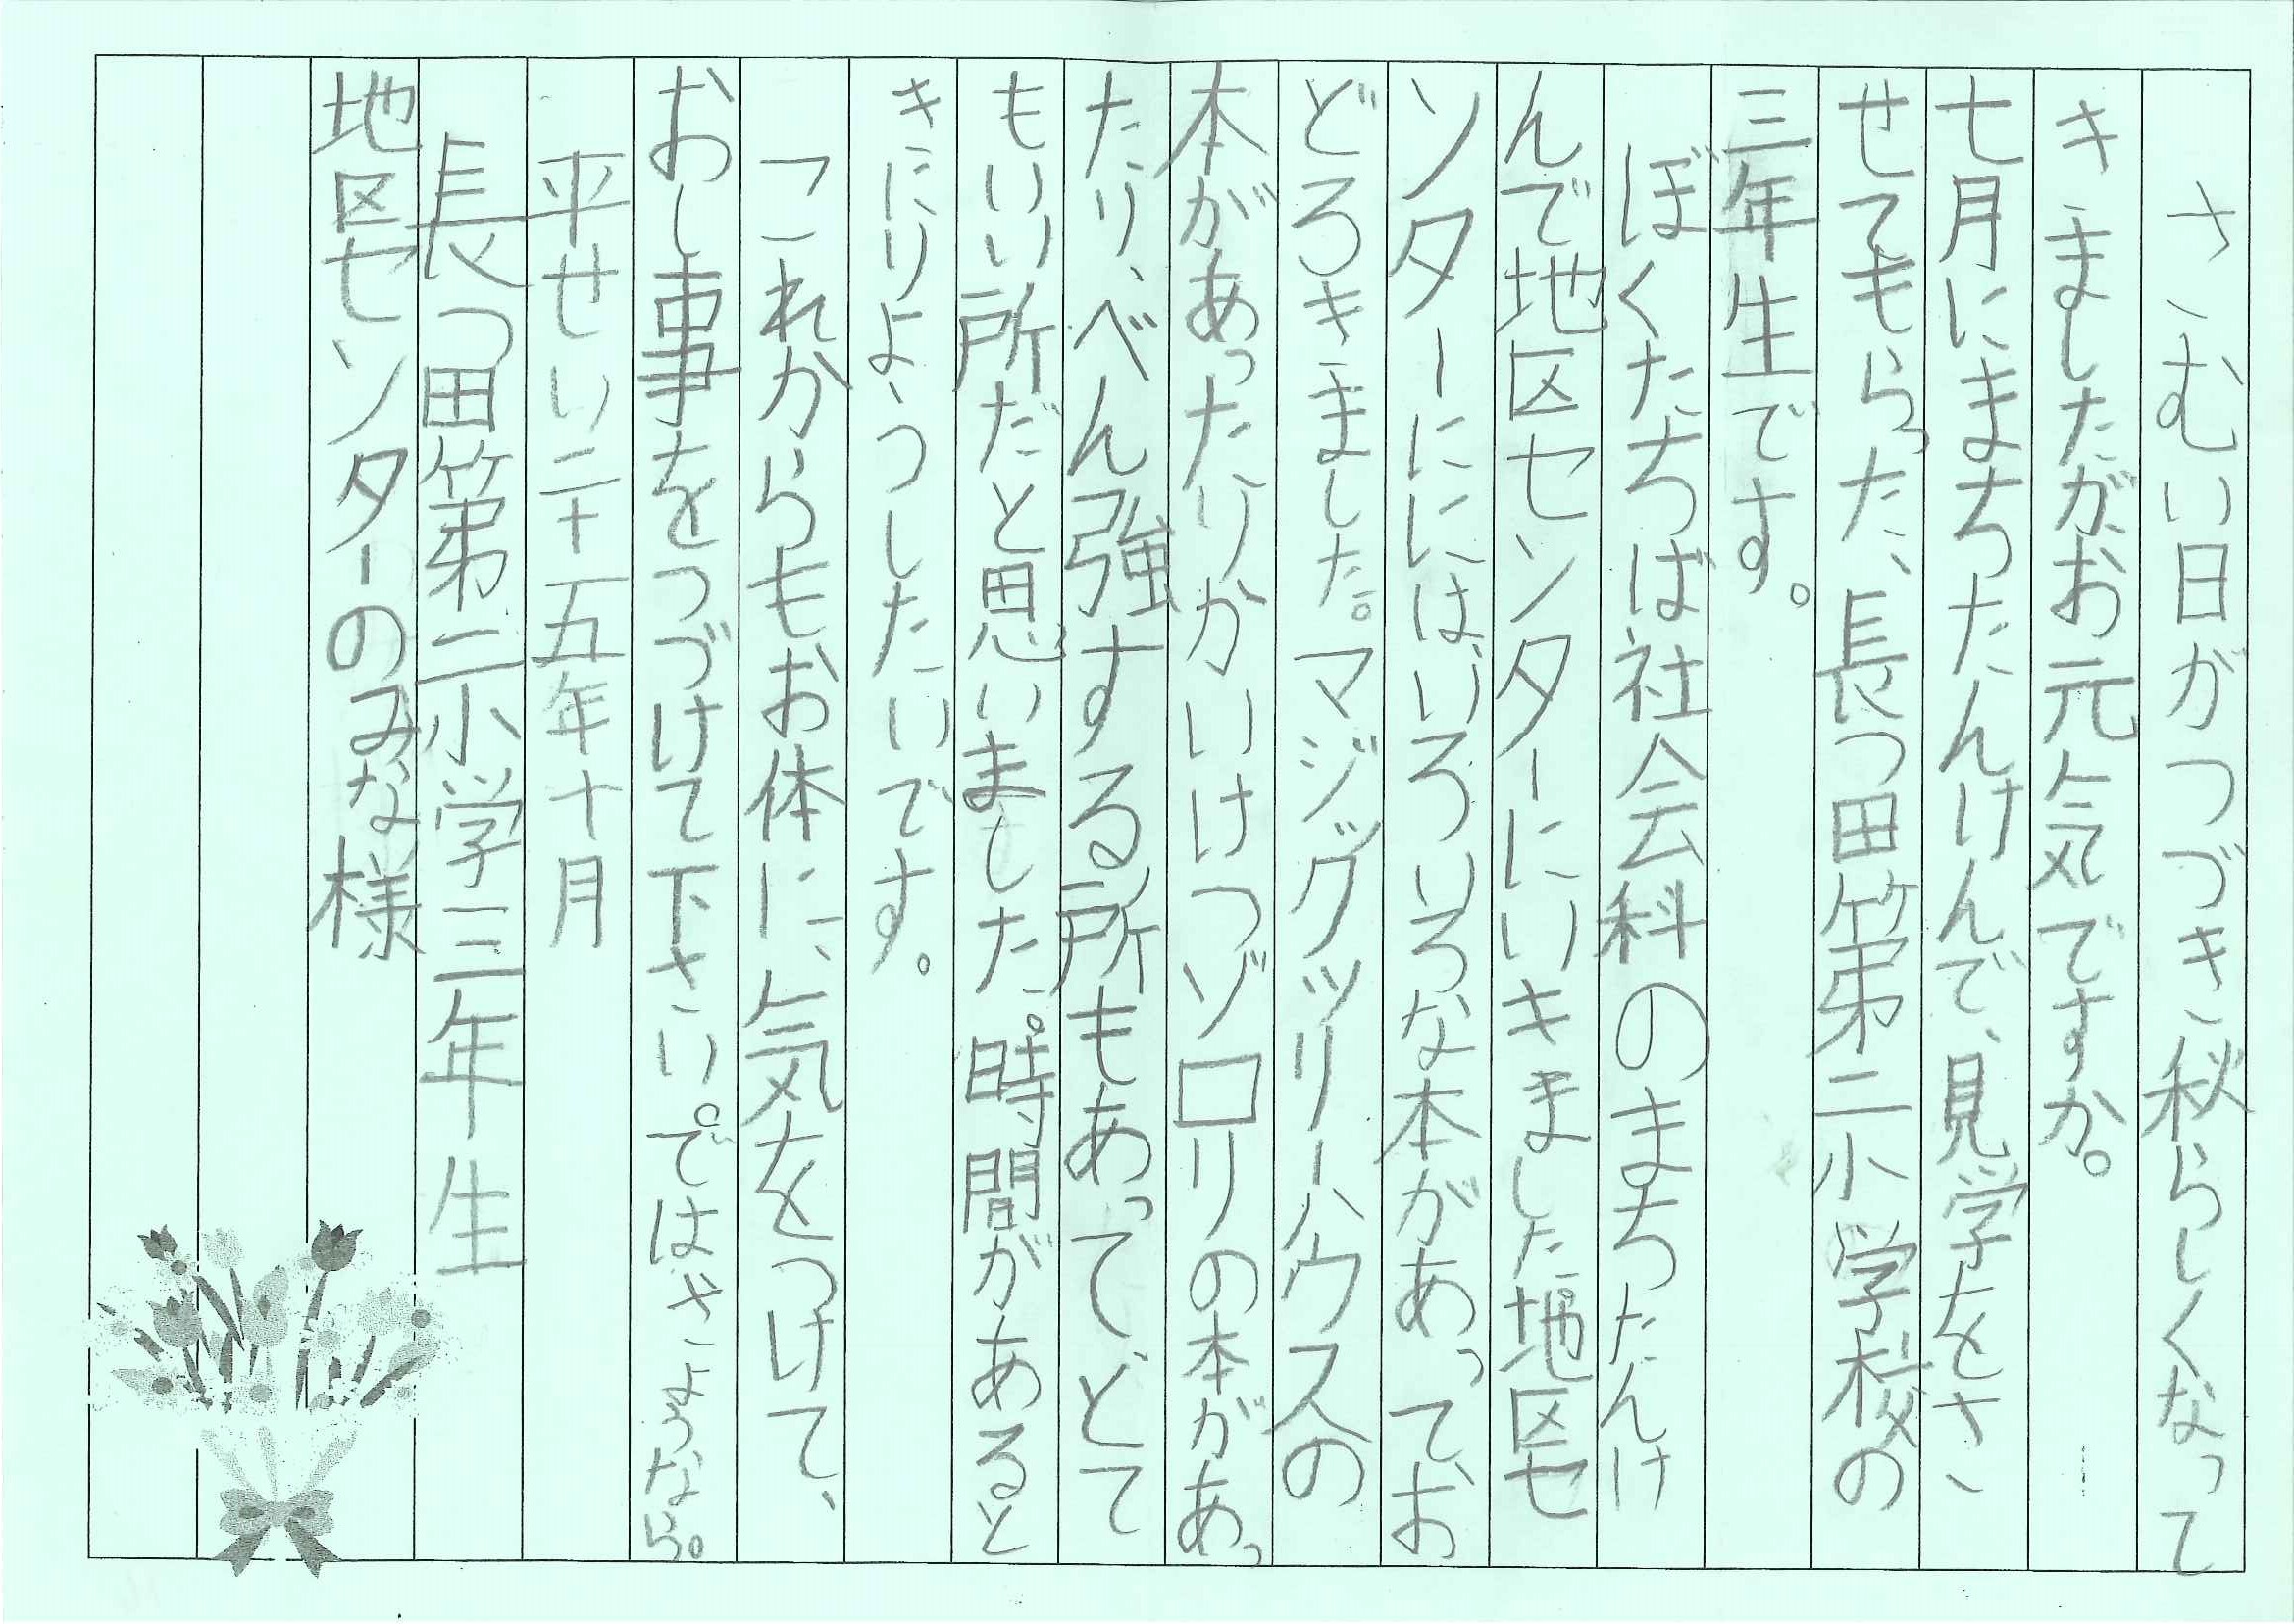 さむい日がつづき秋らしくなって
きましたがお元気ですか。
七月にまちたんけんで、見学をさ
せてもらった、長つ田第二小学校の
三年生です。
ぼくたちは社会科のまちたんけ
んで地区センターにいきました地区セ
ンターにには、いろいろな本があってお
どろきました。マジックツリーハウスの
本があったりかいけつゾロリの本があっ
たり、べん強する所もあって、とて
もいい所だと思いました。時間があると
きにりようしたいです。
これからもお体に、気をつけて、
おし事をつづけて下さい。ではさようなら。
平せい二十五年十月
長つ田第二小学三年生
地区センターのみな様